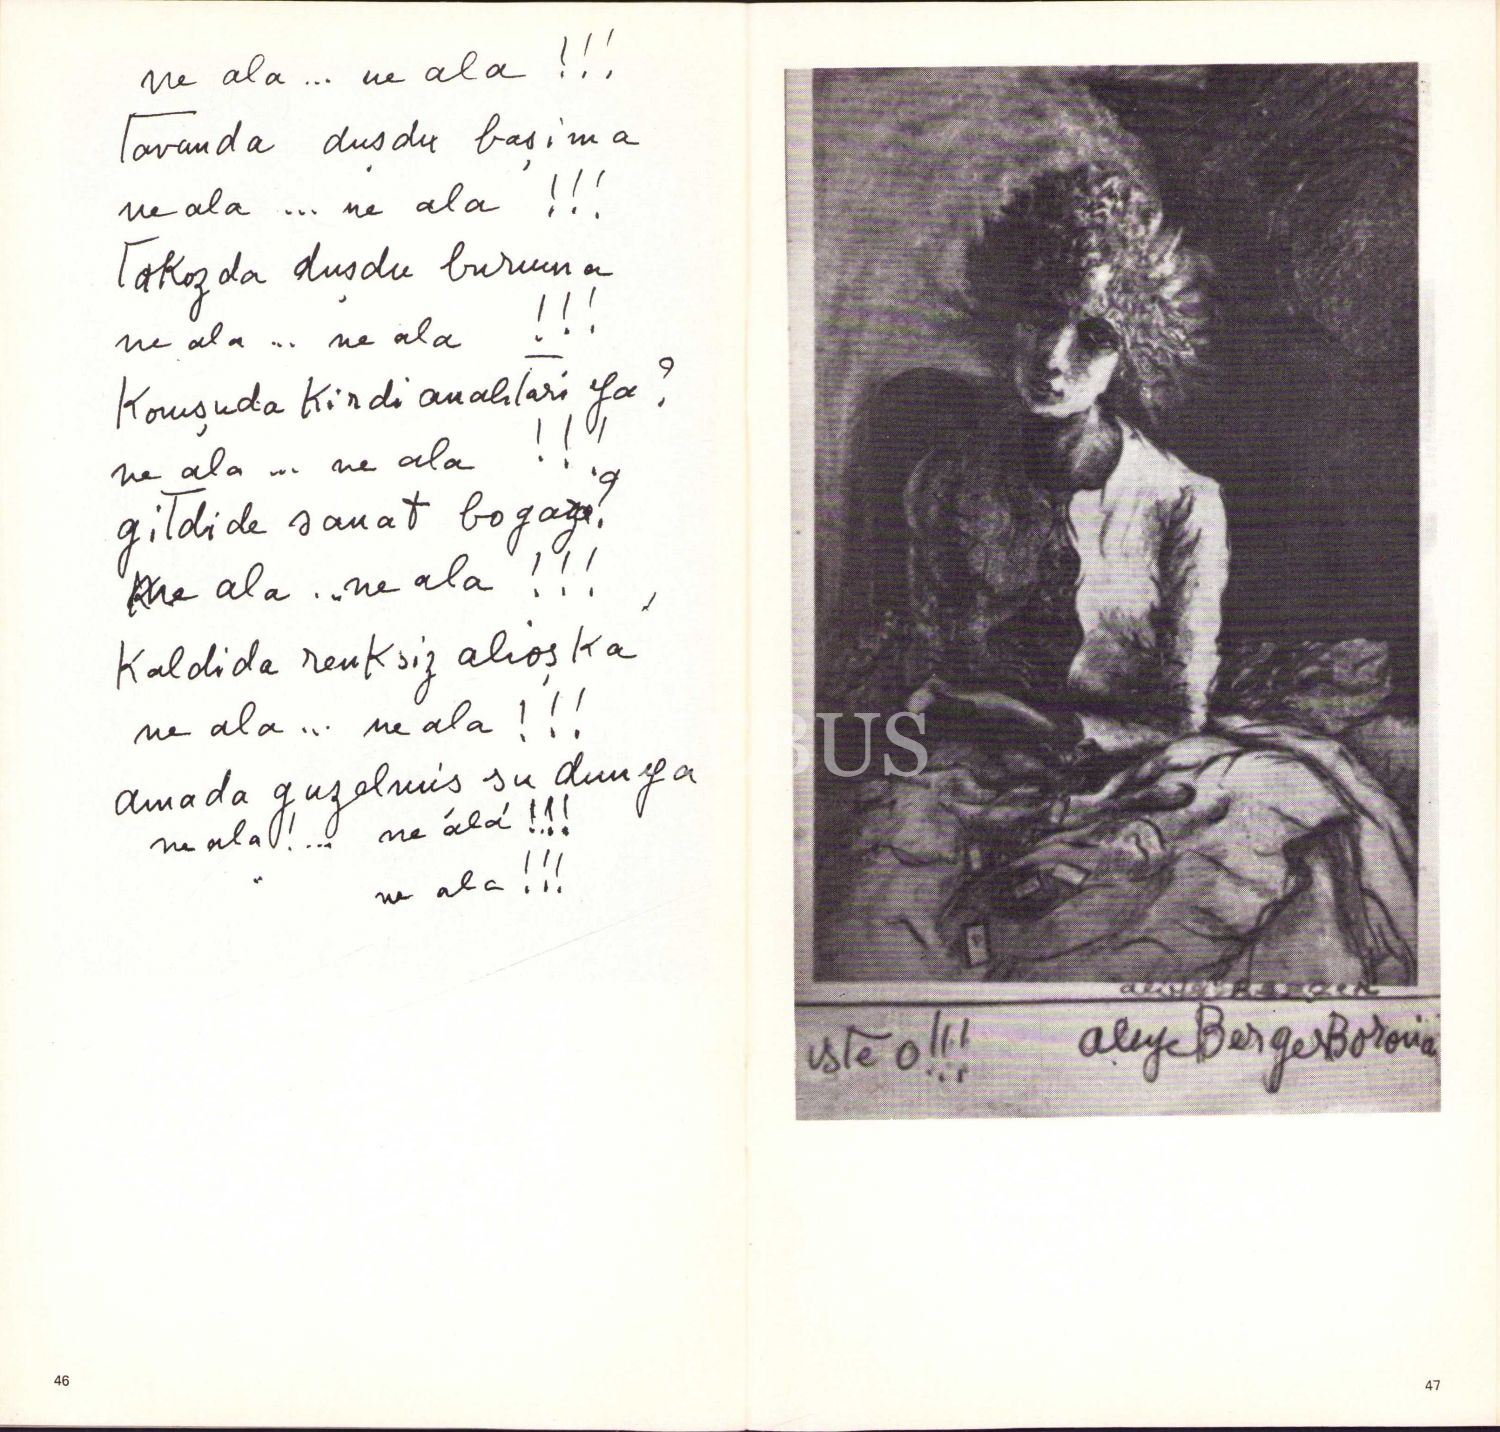 ne ala ... ne ala !!!
Tavanda duşdu başima
ne ala ... ne ala !!!
Takozda duşdu buruma
ne ala ... ne ala !!!
Komşuda Kirdi anahtari ya?
ne ala ... ne ala !!!
gitdide sanat bogaza?
ne ala ... ne ala !!!
Kaldida renksiz alioşka
ne ala ... ne ala !!!
amada guzelmis su dunya
ne ala! ... ne álá !!!!
ne ala !!!
46
BUS
işte o!!!
aliye Berger Boronia
47